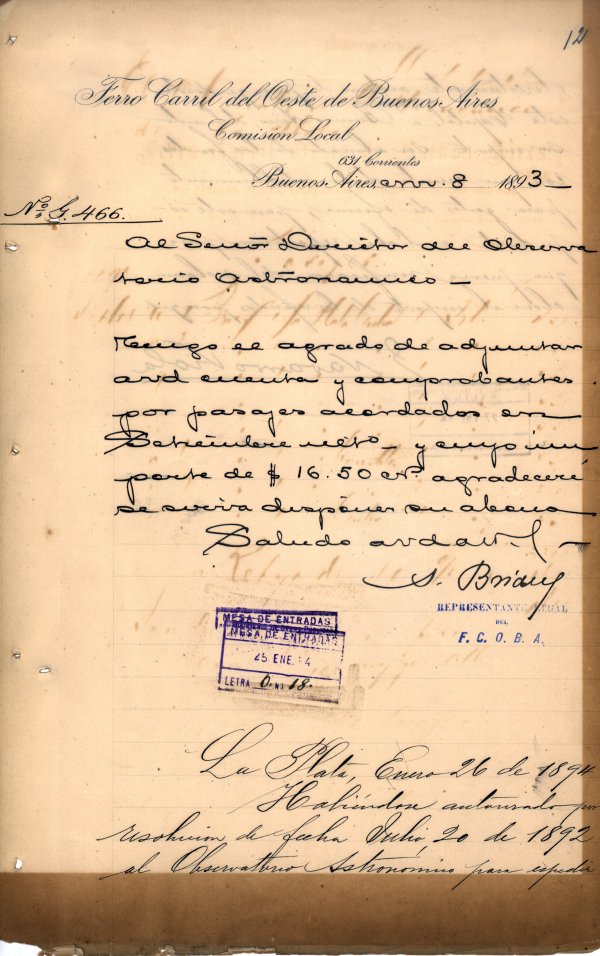 12
Ferro Carril del Oeste de Buenos Aires
Comisión Local
631 Corrientes
Buenos Aires, nov. 8 1893
Nº G. 466.
Al Señor Director del Observa
torio Astronomico
Tengo el agrado de adjuntar
a vd cuenta y comprobantes
por pasajes acordados en
Setiembre ulto y cuyo im
porte de $ 16.50 agradeceré
se sirva disponer su abono
Saludo a vd att.
S. Brian
REPRESENTANTE LEGAL
DEL
F. C. O. B. A.
MESA DE ENTRADAS
MESA DE ENTRADAS
25 ENE. 4
LETRA O. Nº 18.
La Plata, Enero 26 de 1894
Habiéndose autorizado por
resolucion de fecha Julio, 20 de 1892
al Observatorio Astronómico para espedir